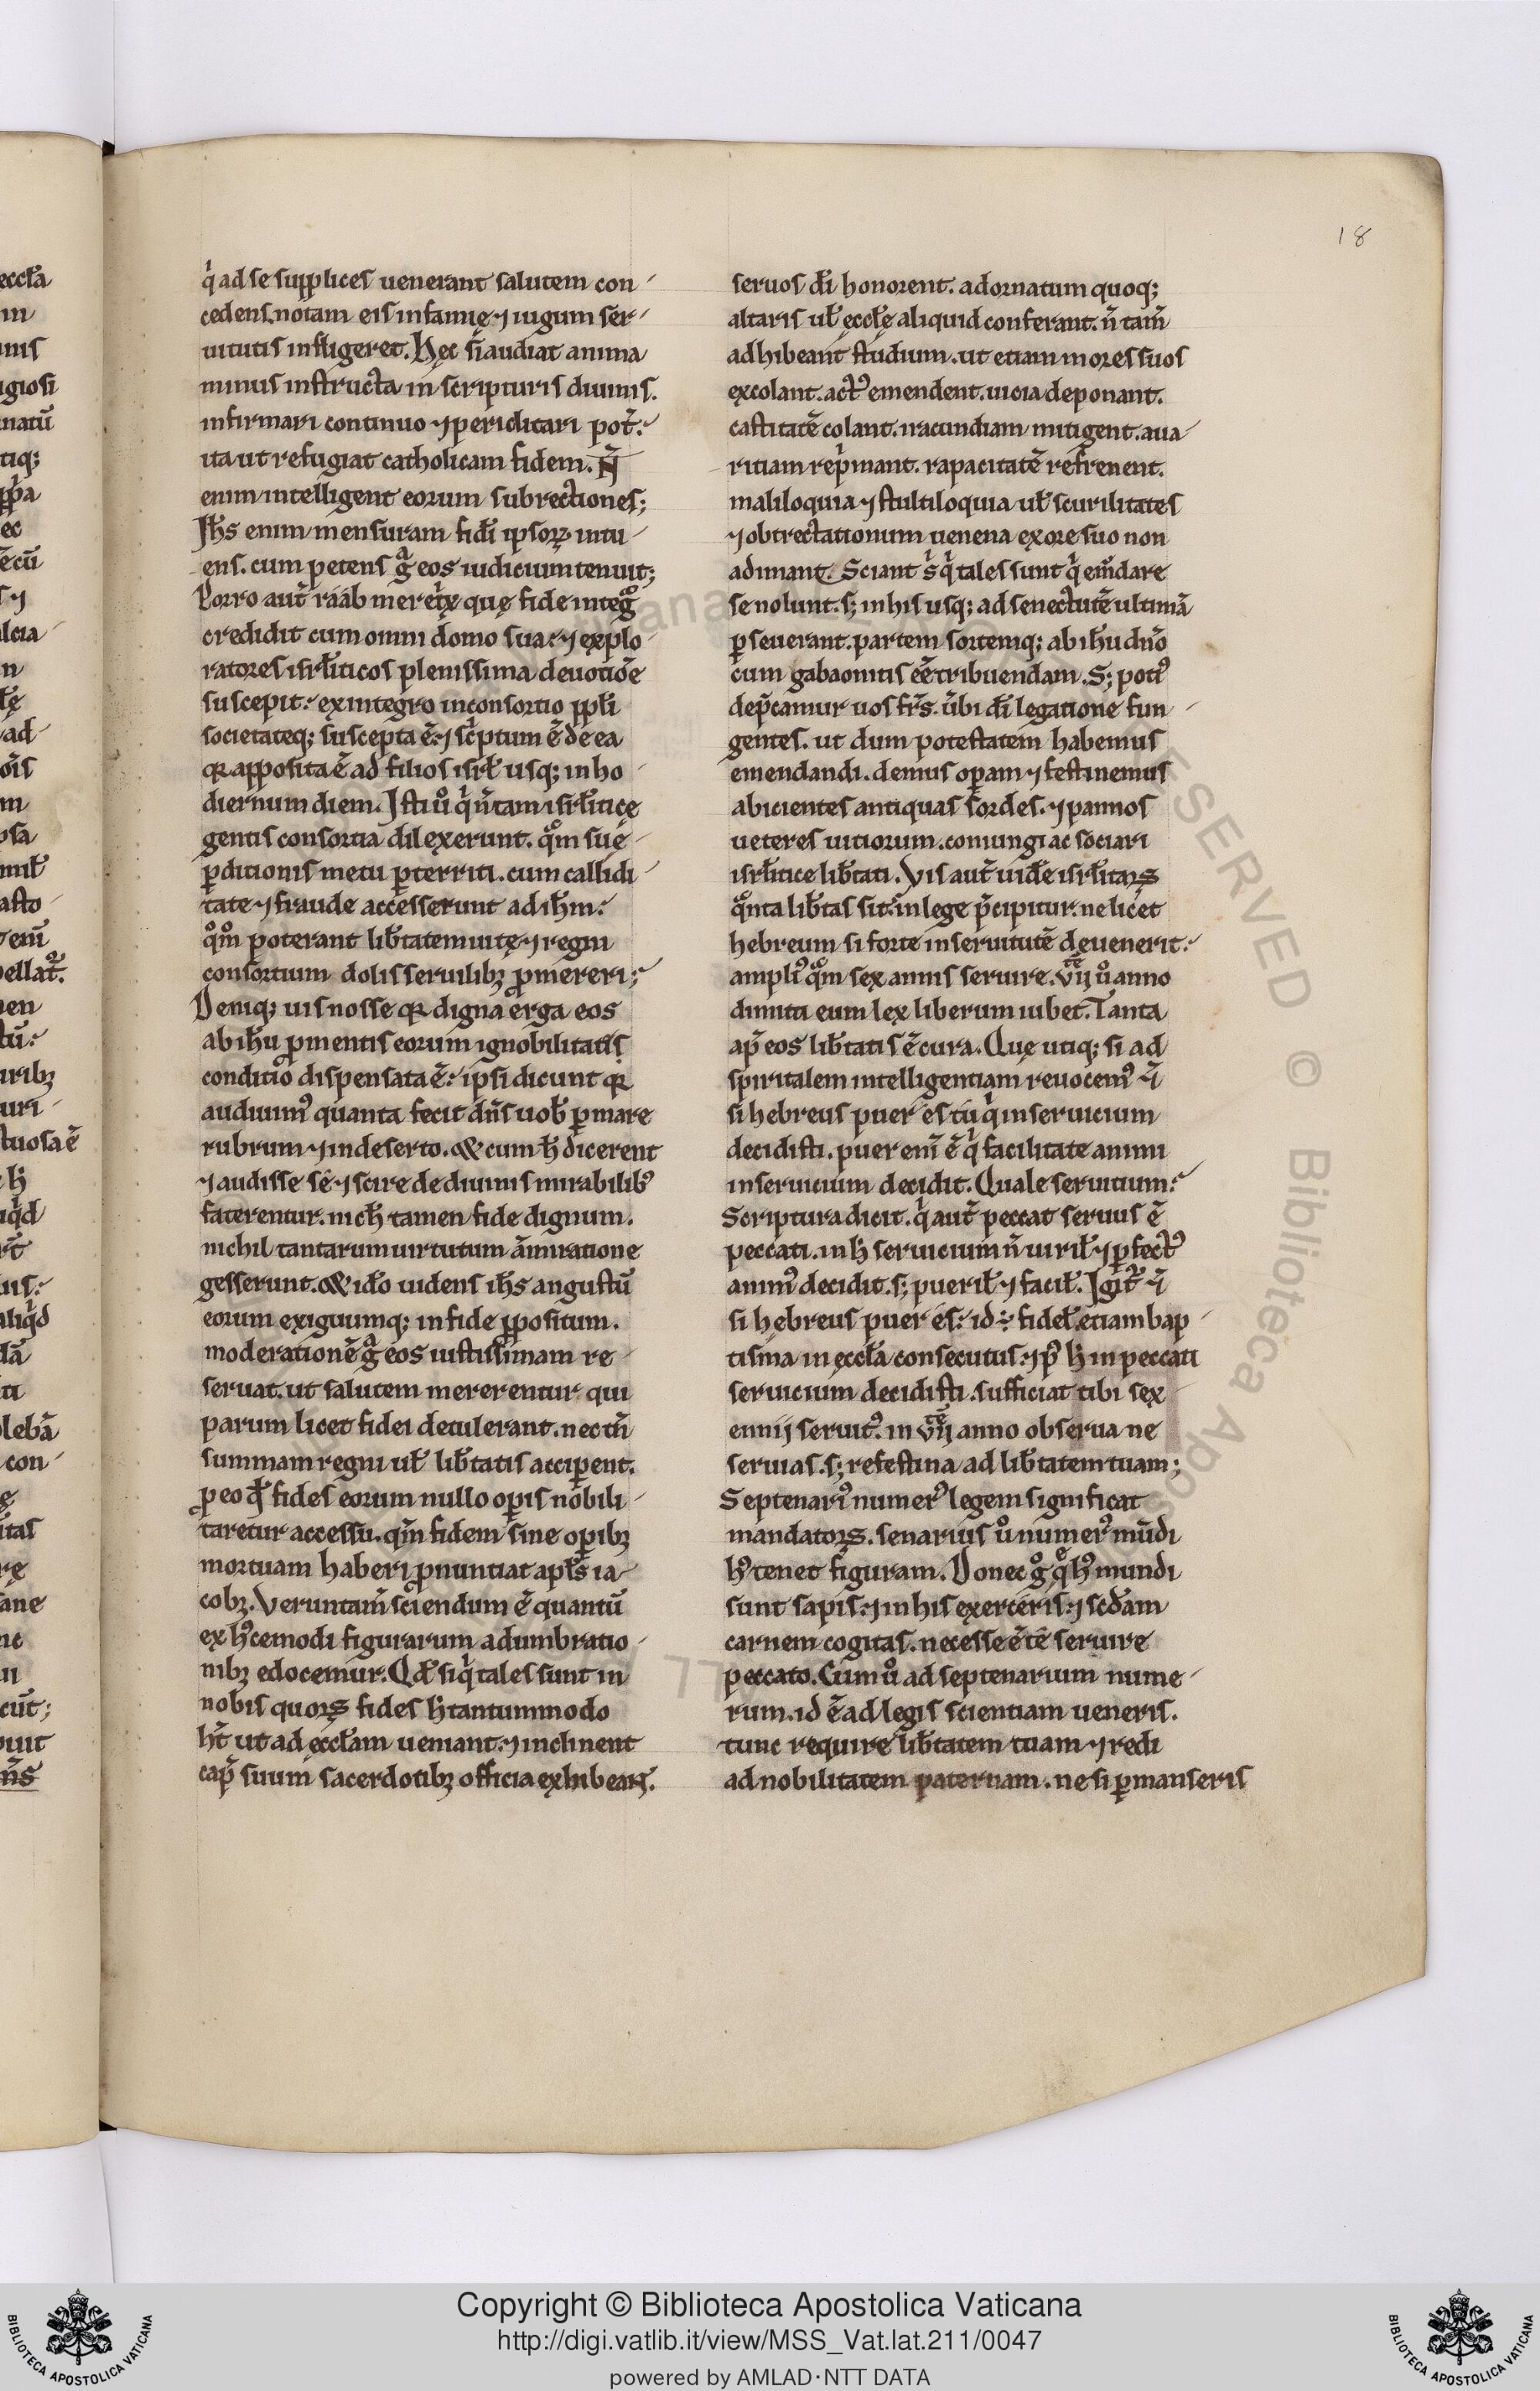 18
q̍ ad se supplices uenerant salutem con
cedens. notam eis infamię ⁊ iugum ser
uitutis infligeret. Hęc si̅ audiat anima
minus instructa in scripturis diuinis.
infirmari continuo ⁊ periclitari pot̅.
ita ut refugiat catholicam fidem. N̅
enim intelligent eorum subrectiones;
Ih̅s enim mensuram fidi̅ ipsoꝝ intu
ens. cum petens gͣ eos iudicium tenuit;
Porro aut̅ raáb meret̍x quę fide integͦ
credidit cum omni domo sua. ⁊ explo
ratores isrl̅iticos plenissima deuotio̅e
suscepit. ex integro in consortio ppl̅i
societateq; suscepta e̅. ⁊ sc̍ptum e̅ de ea
qꝛ apposita e̅ ad filios isrl̅ usq; in ho
diernum diem. Isti uͦ q̍ n̅ tam isrl̅iticę
gentis consortia dilexerunt. qm̅ suę
ꝑditionis metu ꝑterriti. cum callidi
tate ⁊ fraude accesserunt ad ih̅m.
qͦm̅ poterant lib̅tatem uitę ⁊ regni
consortium dolis seruilibꝫ ꝓmereri;
Deniq; uis nosse qꝛ digna erga eos
ab ih̅u ꝓ mentis eorum ignobilitatis
conditio dispensata e̅. ipsi dicunt qꝛ
audiuimꝰ quanta fecit dn̅s uob̅ ꝑ mare
rubrum ⁊ in deserto. & cum h̅ dicerent
⁊ audisse se ⁊ scire de diuinis mirabilibꝰ
faterentur. nich̅ tamen fide dignum.
nichil tantarum uirtutum a̅miratione
gesserunt. & ido̅ uidens ih̅s angustu̅
eorum exiguumq; in fide ꝓpositum.
moderatione̅ gͣ eos iustissimam re
seruat. ut salutem mererentur qui
parum licet fidei detulerant. nec tn̅
summam regni ul̅ lib̅tatis acciꝑent.
ꝓ eo qd̅ fides eorum nullo oꝑis nobili
taretur accessu. qm̅ fidem sine oꝑibꝫ
mortuam haberi ꝓnuntiat apl̅s ia
cobꝫ. Veruntam̅ sciendum e̅ quantu̅
ex hꝰcemodi figurarum adumbratio
nibꝫ edocemur. Qd̅ siq̍ tales sunt in
nobis quoꝝ fides h̅ tantummodo
ht̅ ut ad ęccl̅am ueniant. ⁊ inclinent
cap̅ suum sacerdotibꝫ officia exhibean̅.
seruos di̅ honorent. ad ornatum quoq;
altaris ul̅ ęccl̅ę aliquid conferant. n̅ tam̅
adhibeant studium. ut etiam mores suos
excolant. actꝰ emendent. uicia deponant.
castitate̅ colant. iracundiam mitigent. aua
ritiam rep̍mant. rapacitate̅ refrenent.
maliloquia ⁊ stultiloquia ul̅ scurilitates
⁊ obtrectationum uenena ex ore suo non
adimant. Sciant s̍ q̍ tales sunt q̍ em̅dare
se nolunt. s; in his usq; ad senectute̅ ultima̅
ꝑseuerant. partem sortemq; ab ih̅u dn̅o
cum gabaonitis ee̅ tribuendam. S; potiꝰ
dep̅camur uos fr̅s. u̅bi di̅ legatione fun
gentes. ut dum potestatem habemus
emendandi. demus oꝑam ⁊ festinemus
abicientes antiquas sordes. ⁊ pannos
ueteres uitiorum. coniungi ac sociari
isrl̅itice lib̅tati. Vis aut̅ uide̅ isrl̅itaꝝ
qͣnta lib̅tas sit. in lege p̅cipitur. ne licet
hebreum si forte in seruitute̅ deuenerit.
ampliꝰ qͣm sex annis seruire. vii uͦ anno
dimitti eum lex liberum iubet. Tanta
ap̅ eos lib̅tatis e̅ cura. Quę utiq; si ad
spiritalem intelligentiam reuocemꝰ ⁊
si hebreus puer es tu q̍ in seruicium
decidisti. puer eni̅ e̅ q̍ facilitate animi
in seruicium decidit. Quale seruitium.
Scriptura dicit. q̍ aut̅ peccat seruus e̅
peccati. in h̅ seruicium n̅ uiril̅ ⁊ ꝑfectꝰ
animꝰ decidit. s; pueril̅ ⁊ facil̅. Igit̅ ⁊
si hebreus puer es. id ÷ fidel̅. etiam bap
tisma in ęccl̅a consecutus. ⁊ pꝰ h̅ in peccati
seruicium decidisti. sufficiat tibi sex
ennij seruitꝰ. in vii anno obserua ne
seruias. s; refestina ad lib̅tatem tuam;
Septenariꝰ numerꝰ legem significat
mandatoꝝ. senarius uͦ numerꝰ mu̅di
hꝰ tenet figuram. Donec gͦ q̅ hꝰ mundi
sunt sapis. ⁊ in his exerceris. ⁊ scd̅am
carnem cogitas. necesse e̅ te seruire
peccato. Cum uͦ ad septenarium nume
rum. id e̅ ad legis scientiam ueneris.
tunc require lib̅tatem tuam ⁊ redi
ad nobilitatem paternam. ne si ꝑmanseris
Copyright © Biblioteca Apostolica Vaticana
http://digi.vatlib.it/view/MSS_Vat.lat.211/0047
powered by AMLAD·NTT DATA